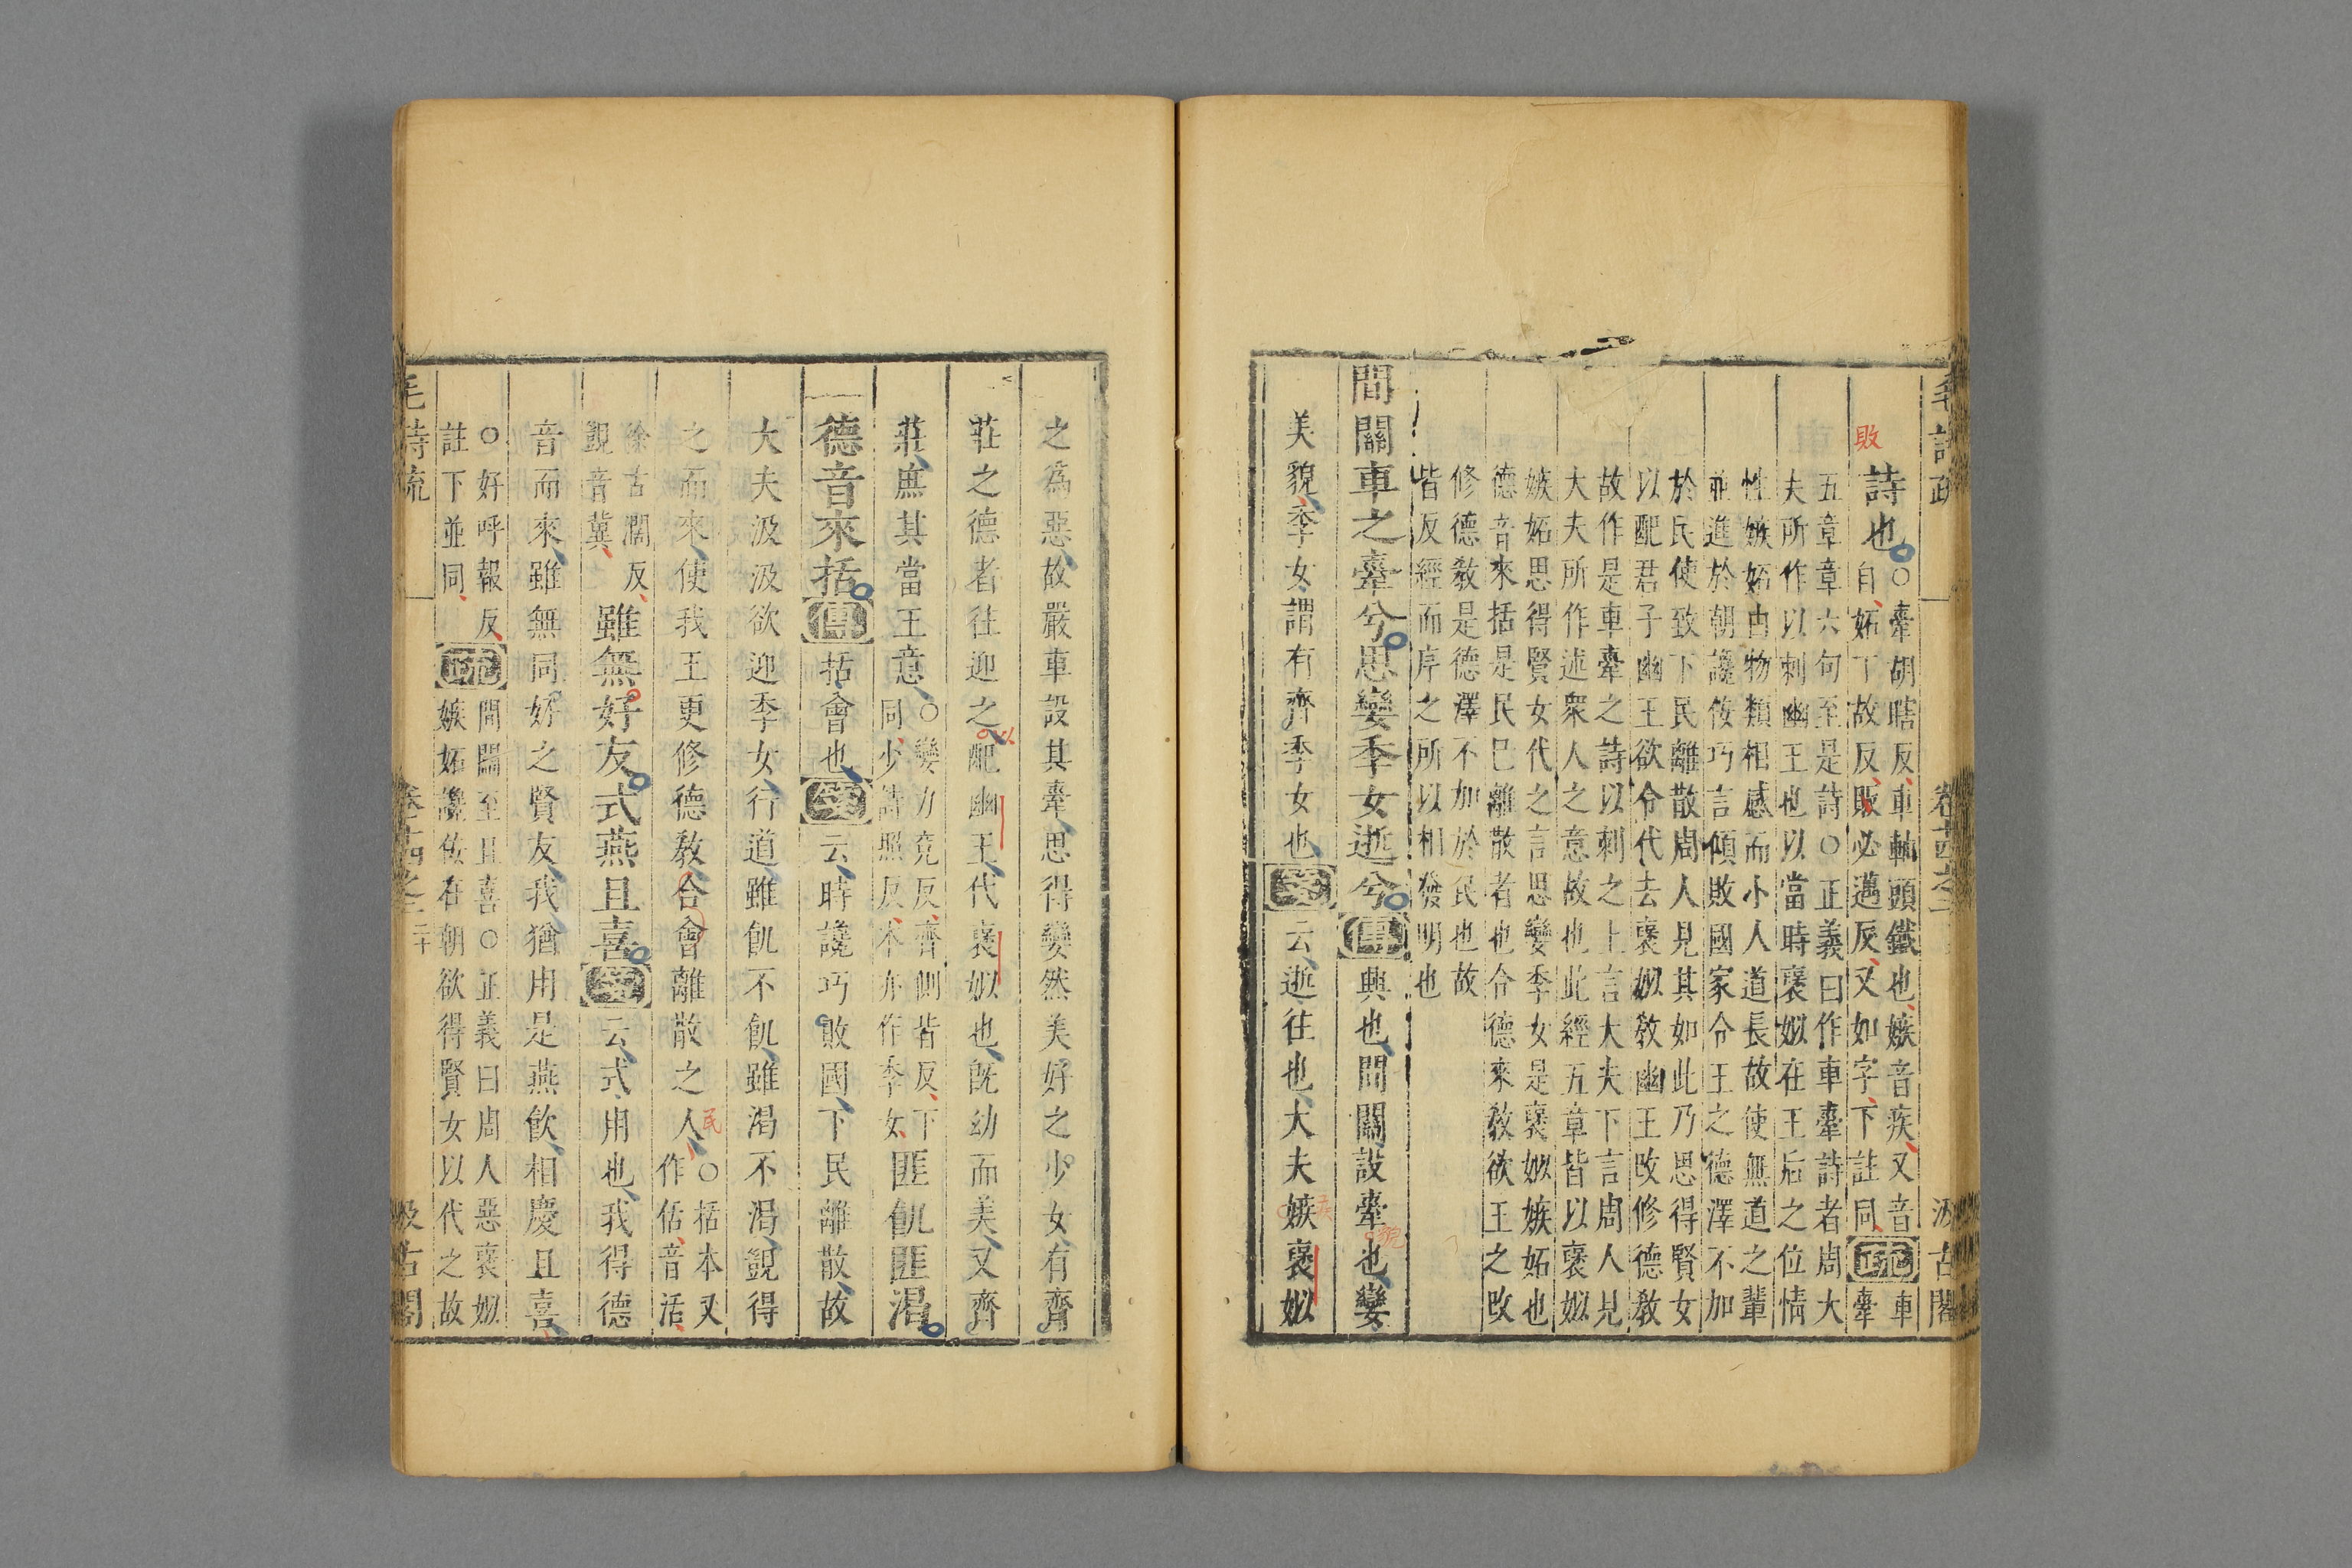 毛詩疏 卷十四之二 汲古閣
詩也○舝胡瞎反車軸頭鐵也嫉音疾又音
自妬下故反敗必邁反又如字下註同疏車舝
敗
五章章六句至是詩○正義曰作車舝詩者周大
夫所作以刺幽王也以當時褒姒在王后之位情
性嫉妬由物類相感而小人道長故使無道之輩
並進於朝讒佞巧言傾敗國家令王之德澤不加
於民使致下民離散周人見其如此乃思得賢女
以配君子幽王欲令代去褒姒教幽王改修德教
故作是車舝之詩以刺之上言大夫下言周人見
大夫所作述衆人之意故也此經五章皆以褒姒
嫉妬思得賢女代之言思孌季女是褒姒嫉妬也
德音來括是民巳離散者也令德來教欲王之改
修德教是德澤不加於民也故
皆反經而序之所以相發明也
間關車之舝兮思孌季女逝兮傳興也間關設舝也孌
美貌季女謂有齊季女也箋云逝往也大夫嫉褒姒
之爲惡故嚴車設其舝思得孌然美好之少女有齊
莊之德者往迎之配幽王代褒姒也旣幼而美又齊
莊庶其當王意○孌力兗反齊側皆反下
同少詩照反本亦作季女匪飢匪渴
德音來括傳括會也箋云時讒巧敗國下民離散故
大夫汲汲欲迎季女行道雖飢不飢雖渴不渴覬得
之而來使我王更修德教合會離散之人○括本又
作佸音活
民
徐古濶反
覬音冀雖無好友式燕且喜箋云式用也我得德
音而來雖無同好之賢友我猶用是燕飮相慶且喜
○好呼報反
註下並同疏間關至且喜○正義曰周人惡褒姒
嫉妬讒佞在朝欲得賢女以代之故
毛詩疏 卷十四之二 二十 汲古閣